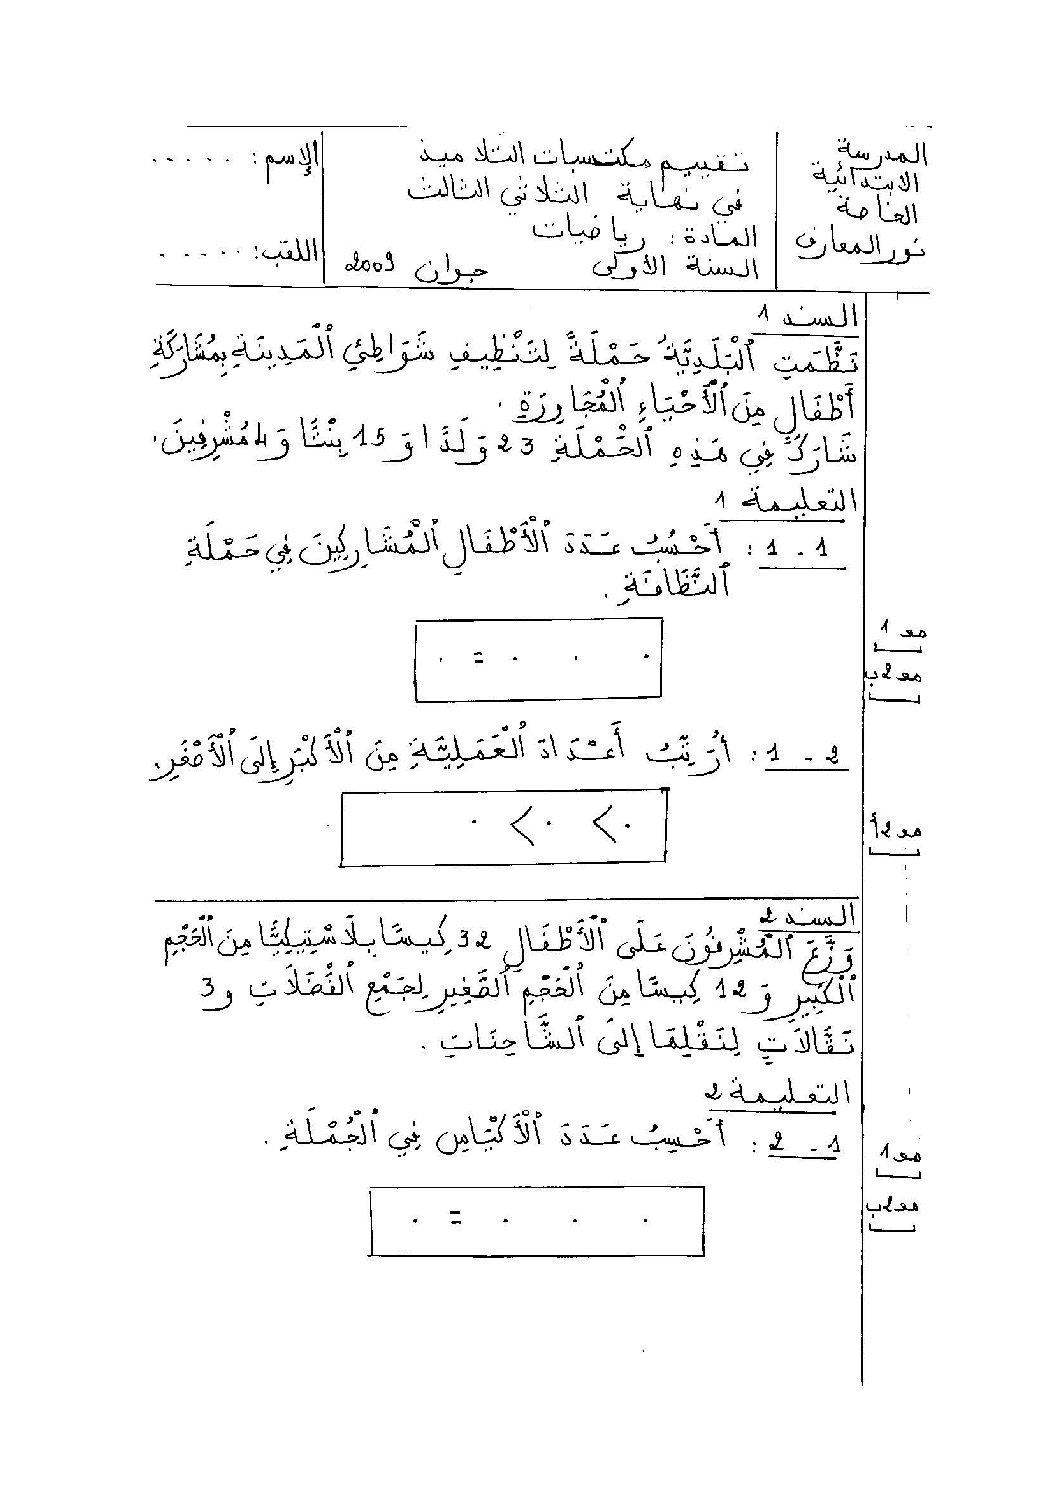 المدرسة
الابتدائية
الخاصة
نور المعارف
تقييم مكتسبات التلاميذ
في نهاية الثلاثي الثالث
المادة: رياضيات
السنة الأولى جوان 2009
الإسم: . . . . .
اللقب: . . . . .
السند 1
نَظَّمَتِ ٱلْبَلَدِيَّةُ حَمْلَةً لِتَنْظِيفِ شَوَاطِئِ ٱلْمَدِينَةِ بِمُشَارَكَةِ
أَطْفَالٍ مِنَ ٱلْأَحْيَاءِ ٱلْمُجَاوِرَةِ.
شَارَكَ فِي هَذِهِ ٱلْحَمْلَةِ 23 وَلَدًا و 15 بِنْتًا وَ 4 مُشْرِفِينَ.
التعليمة 1
1 - 1 : أَحْسُبُ عَدَدَ ٱلْأَطْفَالِ ٱلْمُشَارِكِينَ فِي حَمْلَةِ
ٱلنَّظَافَةِ.
. . . = .
مع 1
مع 2ب
1 - 2 : أُرَتِّبُ أَعْدَادَ ٱلْعَمَلِيَّةِ مِنَ ٱلْأَكْبَرِ إِلَى ٱلْأَصْغَرِ.
. > . > .
مع 2أ
السند 2
وَزَّعَ ٱلْمُشْرِفُونَ عَلَى ٱلْأَطْفَالِ 32 كِيسًا بِلَاسْتِيكِيًّا مِنَ ٱلْحَجْمِ
ٱلْكَبِيرِ وَ 12 كِيسًا مِنَ ٱلْحَجْمِ ٱلصَّغِيرِ لِجَمْعِ ٱلْفَضَلَاتِ و 3
نَقَّالَاتٍ لِنَقْلِهَا إِلَى ٱلشَّاحِنَاتِ.
التعليمة 2
2 - 1 : أَحْسِبُ عَدَدَ ٱلْأَكْيَاسِ فِي ٱلْجُمْلَةِ.
. . . = .
مع 1
مع 2ب